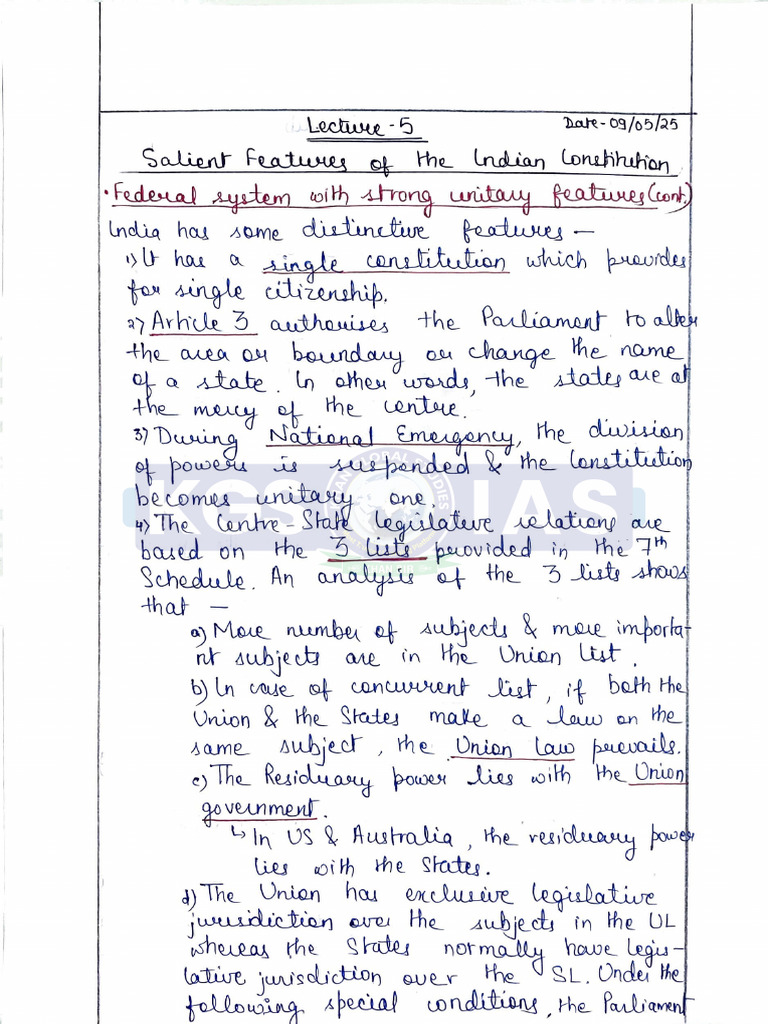 Lecture-5
Date-09/05/25
Salient Features of the Indian Constitution
•Federal system with strong unitary features (cont.)
India has some distinctive features –
1) It has a single constitution which provides
for single citizenship.
2) Article 3 authorises the Parliament to alter
the area or boundary or change the name
of a state. In other words, the states are at
the mercy of the centre.
3) During National Emergency, the division
of powers is suspended & the Constitution
becomes unitary one.
KGS IAS
4) The Centre-State legislative relations are
based on the 3 lists provided in the 7th
Schedule. An analysis of the 3 lists shows
that –
a) More number of subjects & more importa-
nt subjects are in the Union List.
b) In case of concurrent list, if both the
Union & the States make a law on the
same subject, the Union Law prevails.
c) The Residuary power lies with the Union
government.
↳ In US & Australia, the residuary power
lies with the States.
d) The Union has exclusive legislative
jurisdiction over the subjects in the UL
whereas the States normally have legis-
lative jurisdiction over the SL. Under the
following special conditions, the Parliament